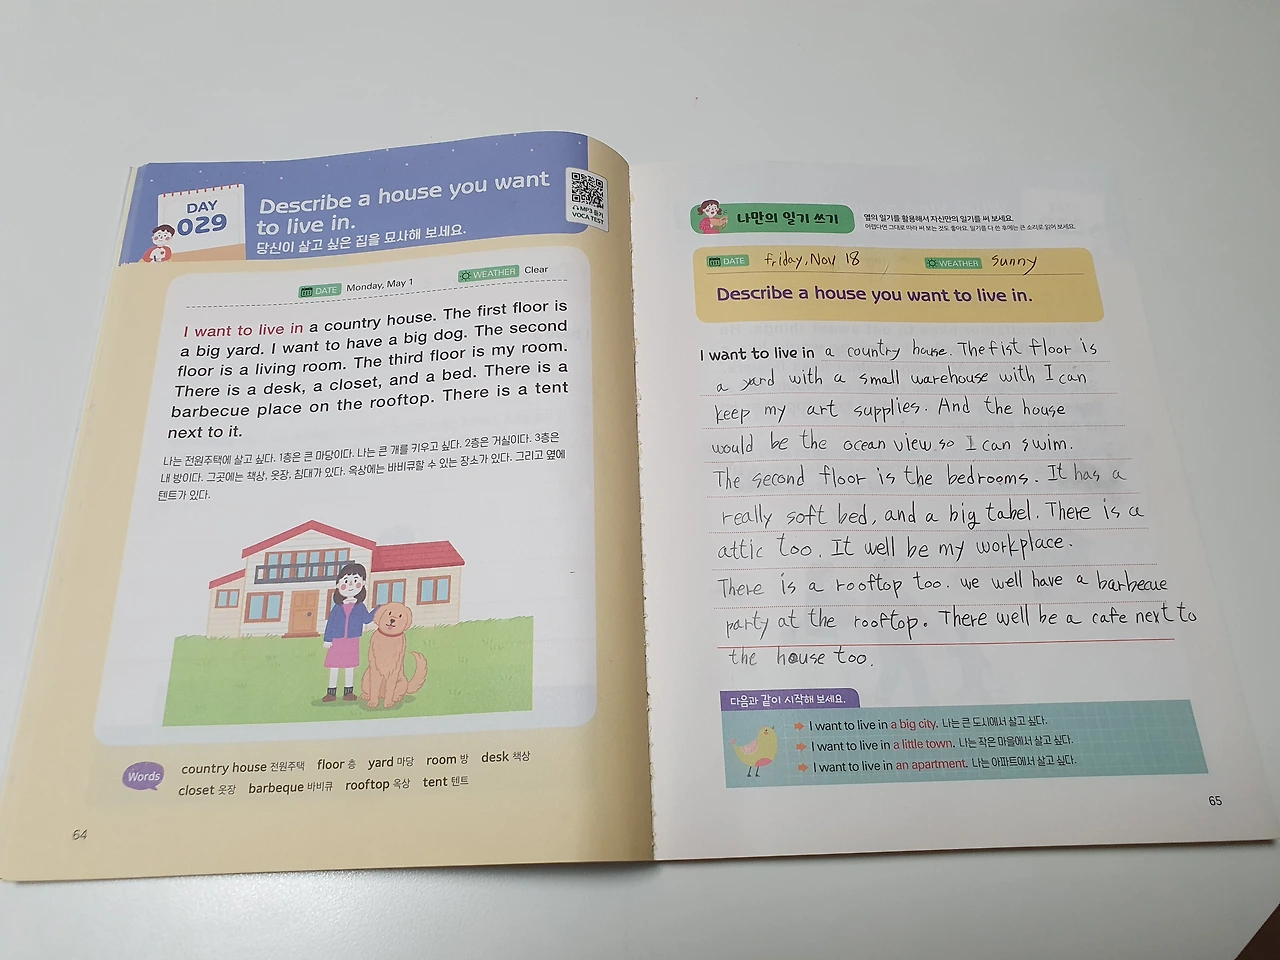 DAY
029
Describe a house you want
to live in.
당신이 살고 싶은 집을 묘사해 보세요.
MP3 듣기
VOCA TEST
DATE Monday, May 1
WEATHER Clear
I want to live in a country house. The first floor is
a big yard. I want to have a big dog. The second
floor is a living room. The third floor is my room.
There is a desk, a closet, and a bed. There is a
barbecue place on the rooftop. There is a tent
next to it.
나는 전원주택에 살고 싶다. 1층은 큰 마당이다. 나는 큰 개를 키우고 싶다. 2층은 거실이다. 3층은
내 방이다. 그곳에는 책상, 옷장, 침대가 있다. 옥상에는 바비큐할 수 있는 장소가 있다. 그리고 옆에
텐트가 있다.
Words
country house 전원주택 floor 층 yard 마당 room 방 desk 책상
closet 옷장 barbeque 바비큐 rooftop 옥상 tent 텐트
64
나만의 일기 쓰기
옆의 일기를 활용해서 자신만의 일기를 써 보세요.
어렵다면 그대로 따라 써 보는 것도 좋아요. 일기를 다 한 후에는 큰 소리로 읽어 보세요.
DATE friday, Nov 18
WEATHER sunny
Describe a house you want to live in.
I want to live in a country house. The fist floor is
a yard with a small warehouse with I can
keep my art supplies. And the house
would be the ocean view so I can swim.
The second floor is the bedrooms. It has a
really soft bed, and a big tabel. There is a
attic too. It well be my workplace.
There is a rooftop too. we well have a barbecue
party at the rooftop. There well be a cafe next to
the house too.
다음과 같이 시작해 보세요.
I want to live in a big city. 나는 큰 도시에서 살고 싶다.
I want to live in a little town. 나는 작은 마을에서 살고 싶다.
I want to live in an apartment. 나는 아파트에서 살고 싶다.
65